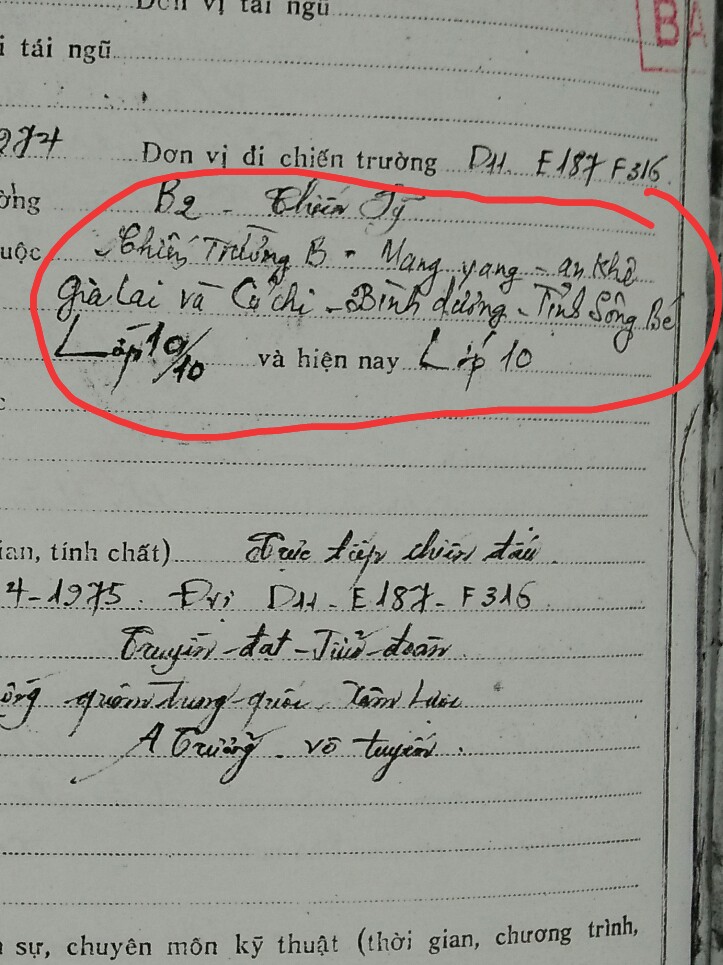 Đơn vị tái ngũ
i tái ngũ
BA
974 Đơn vị đi chiến trường D11. E187 F316
ờng B2 - Chiến Sỹ
uộc Chiến Trường B - Mang yang - an Khê
Gia Lai và Củ chi - Bình dương - Tỉnh Sông Bé
Lớp 10/10 và hiện nay Lớp 10
c
ian, tính chất) Trực tiếp chiến đấu
4-1975. Đvị D11 - E187 - F316
Truyền - đạt - Tiểu - đoàn
ống quân Trung - quốc. Xâm Lược
A Trưởng - vô tuyến.
sự, chuyên môn kỹ thuật (thời gian, chương trình,